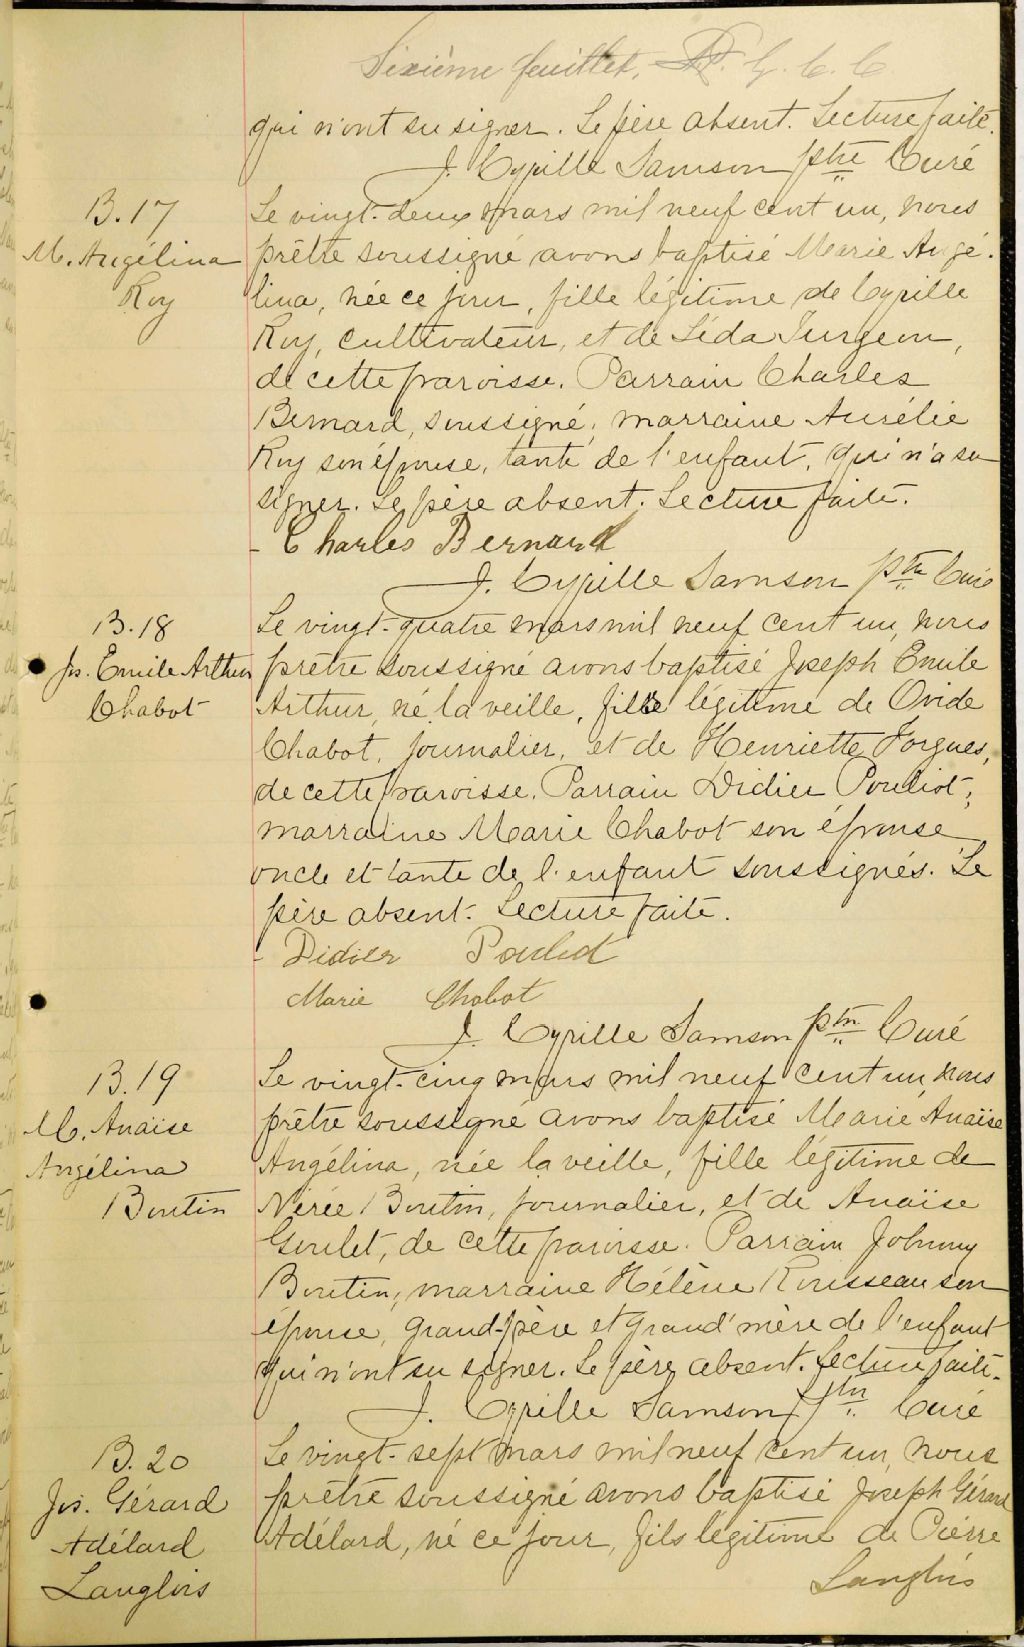 Sixième feuillet, G. C. C.
qui n'ont su signer. Le père absent. Lecture faite.
J. Cyrille Samson ptre Curé
B. 17
M. Angélina
Roy
Le vingt-deux mars mil neuf cent un, nous
prêtre soussigné avons baptisé Marie Angé-
lina, née ce jour, fille légitime de Cyrille
Roy, cultivateur, et de Léda Turgeon,
de cette paroisse. Parrain Charles
Bernard, soussigné, marraine Aurélie
Roy son épouse, tante de l'enfant, qui n'a su
signer. Le père absent. Lecture faite.
- Charles Bernard
J. Cyrille Samson ptre Curé
B. 18
Jos. Emile Arthur
Chabot
Le vingt-quatre mars mil neuf cent un, nous
prêtre soussigné avons baptisé Joseph Emile
Arthur, né la veille, fils légitime de Ovide
Chabot, journalier, et de Henriette Forgues,
de cette paroisse. Parrain Didier Pouliot,
marraine Marie Chabot son épouse
oncle et tante de l'enfant soussignés. Le
père absent. Lecture faite.
- Didier Pouliot
Marie Chabot
J. Cyrille Samson ptre Curé
B. 19
M. Anaïse
Angélina
Boutin
Le vingt-cinq mars mil neuf cent un, nous
prêtre soussigné avons baptisé Marie Anaïse
Angélina, née la veille, fille légitime de
Nérée Boutin, journalier, et de Anaïse
Goulet, de cette paroisse. Parrain Johnny
Boutin, marraine Hélène Rousseau son
épouse, grand-père et grand'mère de l'enfant
qui n'ont su signer. Le père absent. Lecture faite.
J. Cyrille Samson ptre Curé
B. 20
Jos. Gérard
Adélard
Langlois
Le vingt-sept mars mil neuf cent un, nous
prêtre soussigné avons baptisé Joseph Gérard
Adélard, né ce jour, fils légitime de Pierre
Langlois